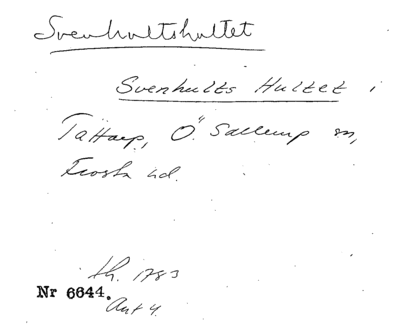 Svenhultshultet
Svenhults Hultet i
Tattarp, Ö. Sallerup sn,
Frosta hd.
lh. 1783
Nr 6644.
Akt 4.